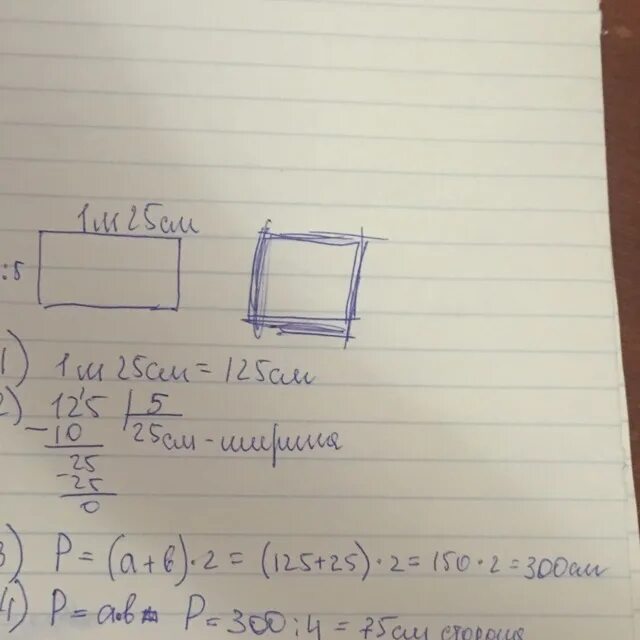 1м 25см
:5
1) 1м 25см = 125см
2) 125 | 5
-10 25см - ширина
25
-25
0
3) P = (a+b)·2 = (125+25)·2 = 150·2 = 300см
4) P = a·b P = 300:4 = 75см сторона